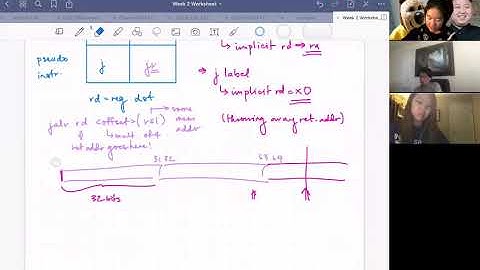 Week 2 Worksheet
Week 2 Workshe...
pseudo
instr.
j
jr
rd = reg dst
↳ implicit rd → ra
→ j label
↳ implicit rd = x0
(throwing away ret. addr)
jalr rd offset (rs1)
→ some
mem
addr
↳ mult of 4
ret addr goes here!
31 32
63 64
32 bits